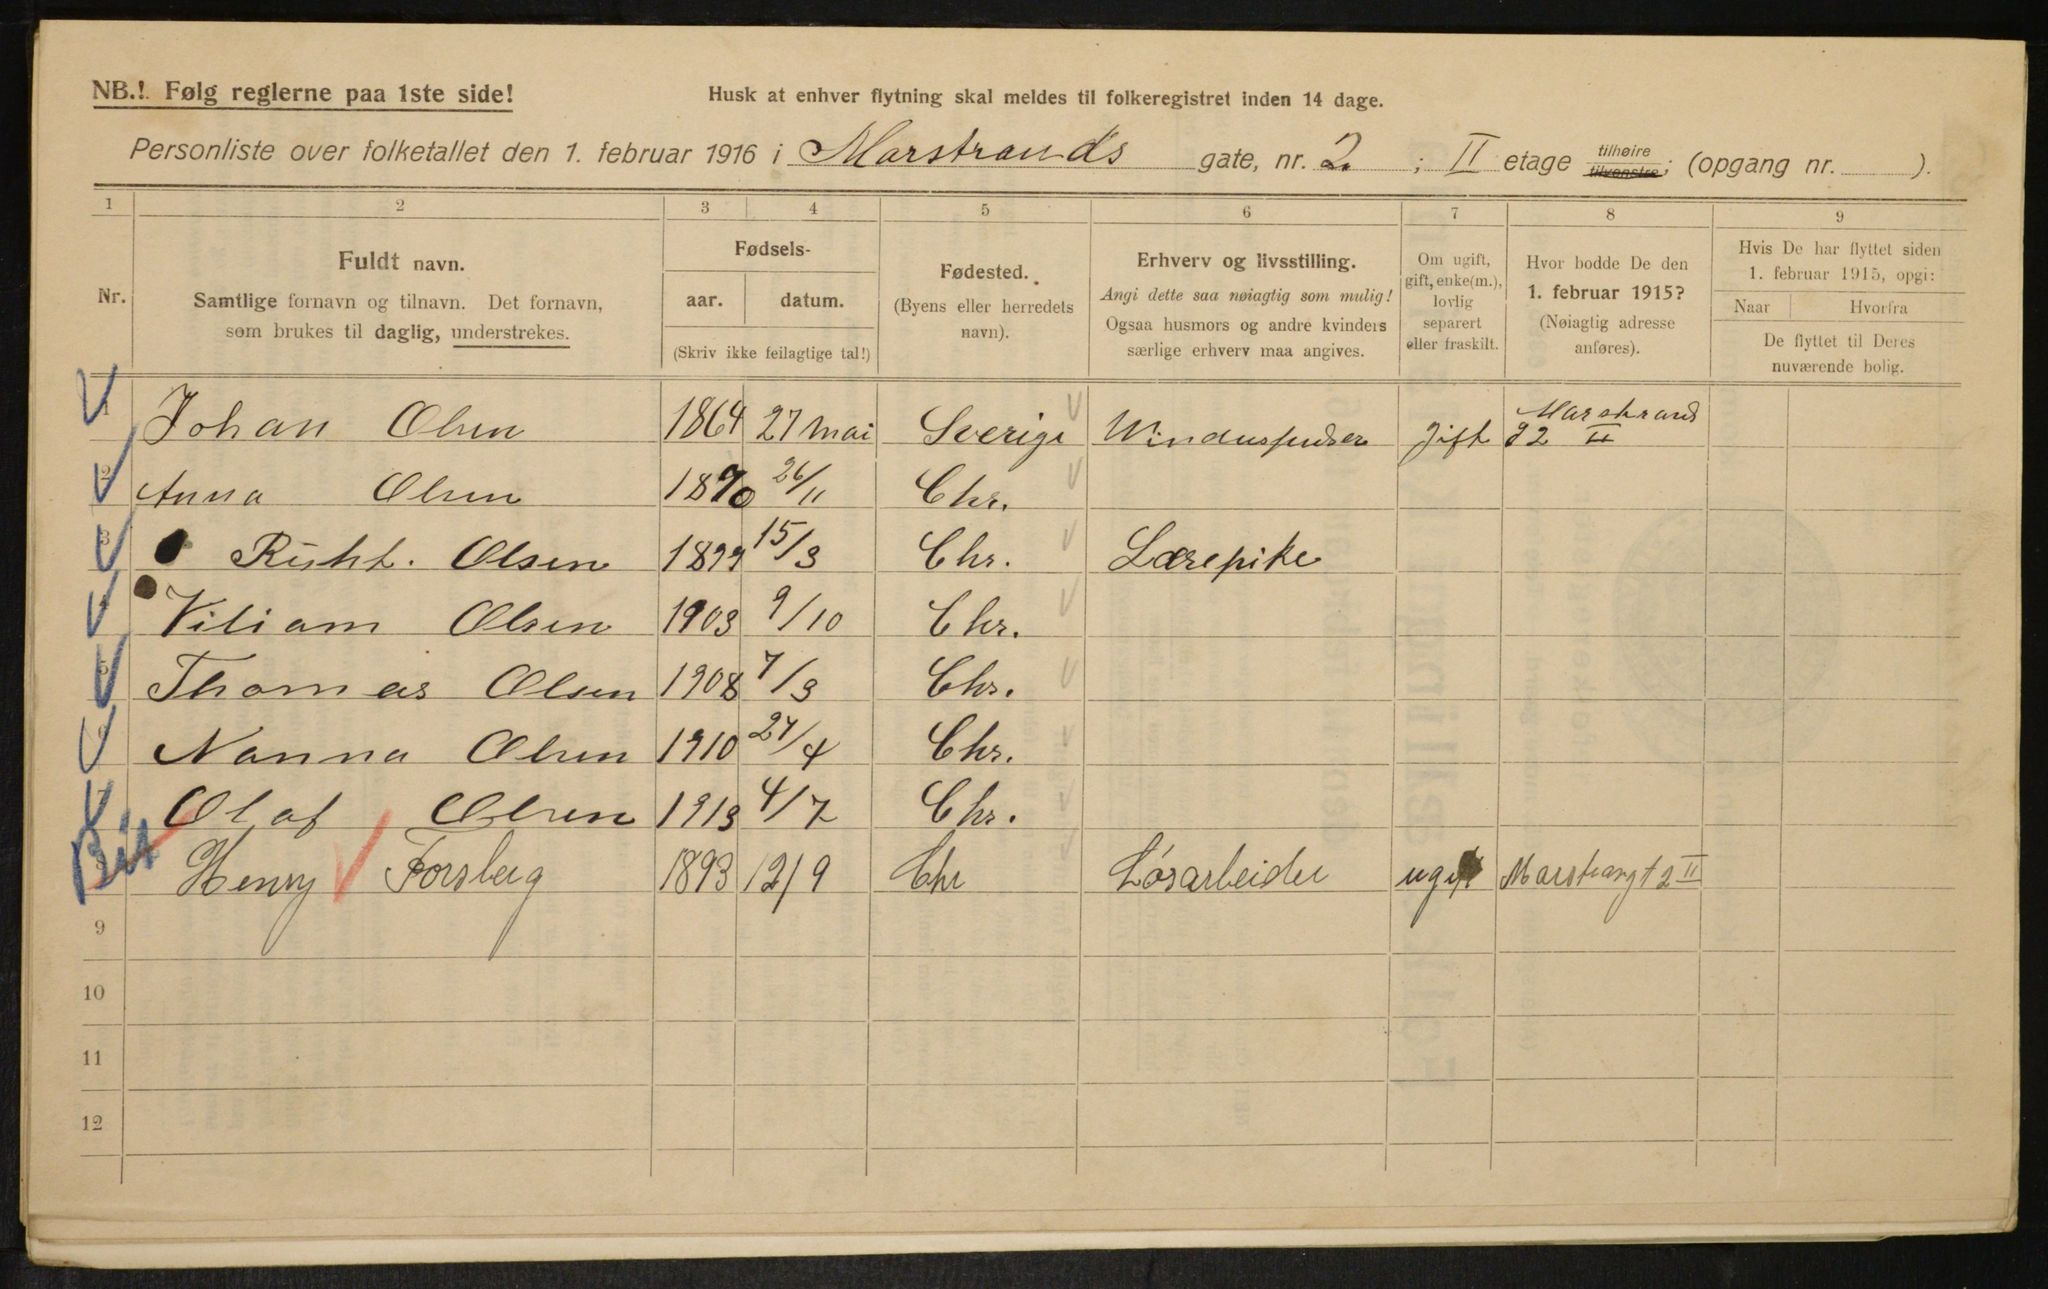 NB.! Følg reglerne paa 1ste side!
Husk at enhver flytning skal meldes til folkeregistret inden 14 dage.
Personliste over folketallet den 1. februar 1916 i Marstrands gate, nr. 2. ; II etage tilhøire tilvenstre; (opgang nr. ).
1 2 3 4 5 6 7 8 9
Nr.
Fuldt navn.
Samtlige fornavn og tilnavn. Det fornavn,
som brukes til daglig, understrekes.
Fødsels-
aar. datum.
(Skriv ikke feilagtige tal!)
Fødested.
(Byens eller herredets
navn).
Erhverv og livsstilling.
Angi dette saa nøiagtig som mulig!
Ogsaa husmors og andre kvinders
særlige erhverv maa angives.
Om ugift,
gift, enke(m.),
lovlig
separert
eller fraskilt.
Hvor bodde De den
1. februar 1915?
(Nøiagtig adresse
anføres).
Hvis De har flyttet siden
1. februar 1915, opgi:
Naar Hvorfra
De flyttet til Deres
nuværende bolig.
1 Johan Olsen 1864 27 mai Sverige Winduspudser gift Marstrand g 2 II
2 Anna Olsen 1870 26/11 Chr.
3 Ruht. Olsen 1899 15/3 Chr. Lærepike
Viliam Olsen 1903 9/10 Chr.
5 Thomas Olsen 1908 7/3 Chr.
6 Nanna Olsen 1910 27/4 Chr.
7 Olaf Olsen 1913 4/7 Chr.
Henry Forsberg 1893 12/9 Chr Løsarbeider ugift Marstrangt 2 II
9
10
11
12